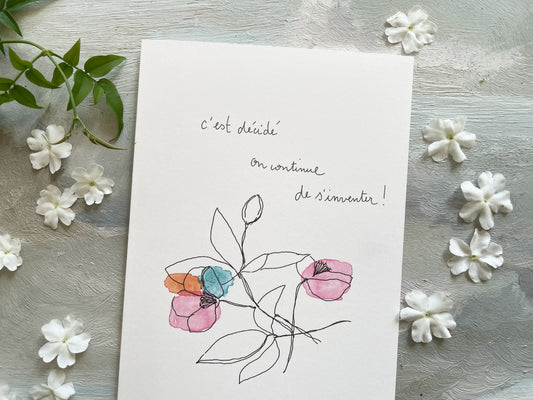 c'est décidé
on continue
de s'inventer !